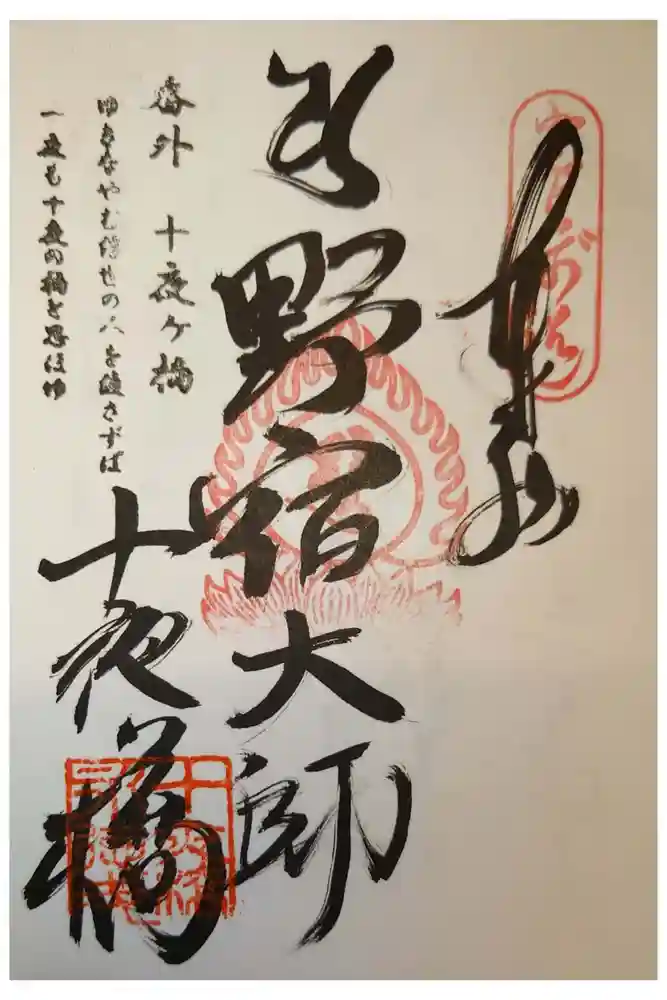 奉拝
野宿大師
十夜橋
番外 十夜ヶ橋
ゆきなやむ浮世の人を渡さずば
一夜も十夜の橋と思ほゆ